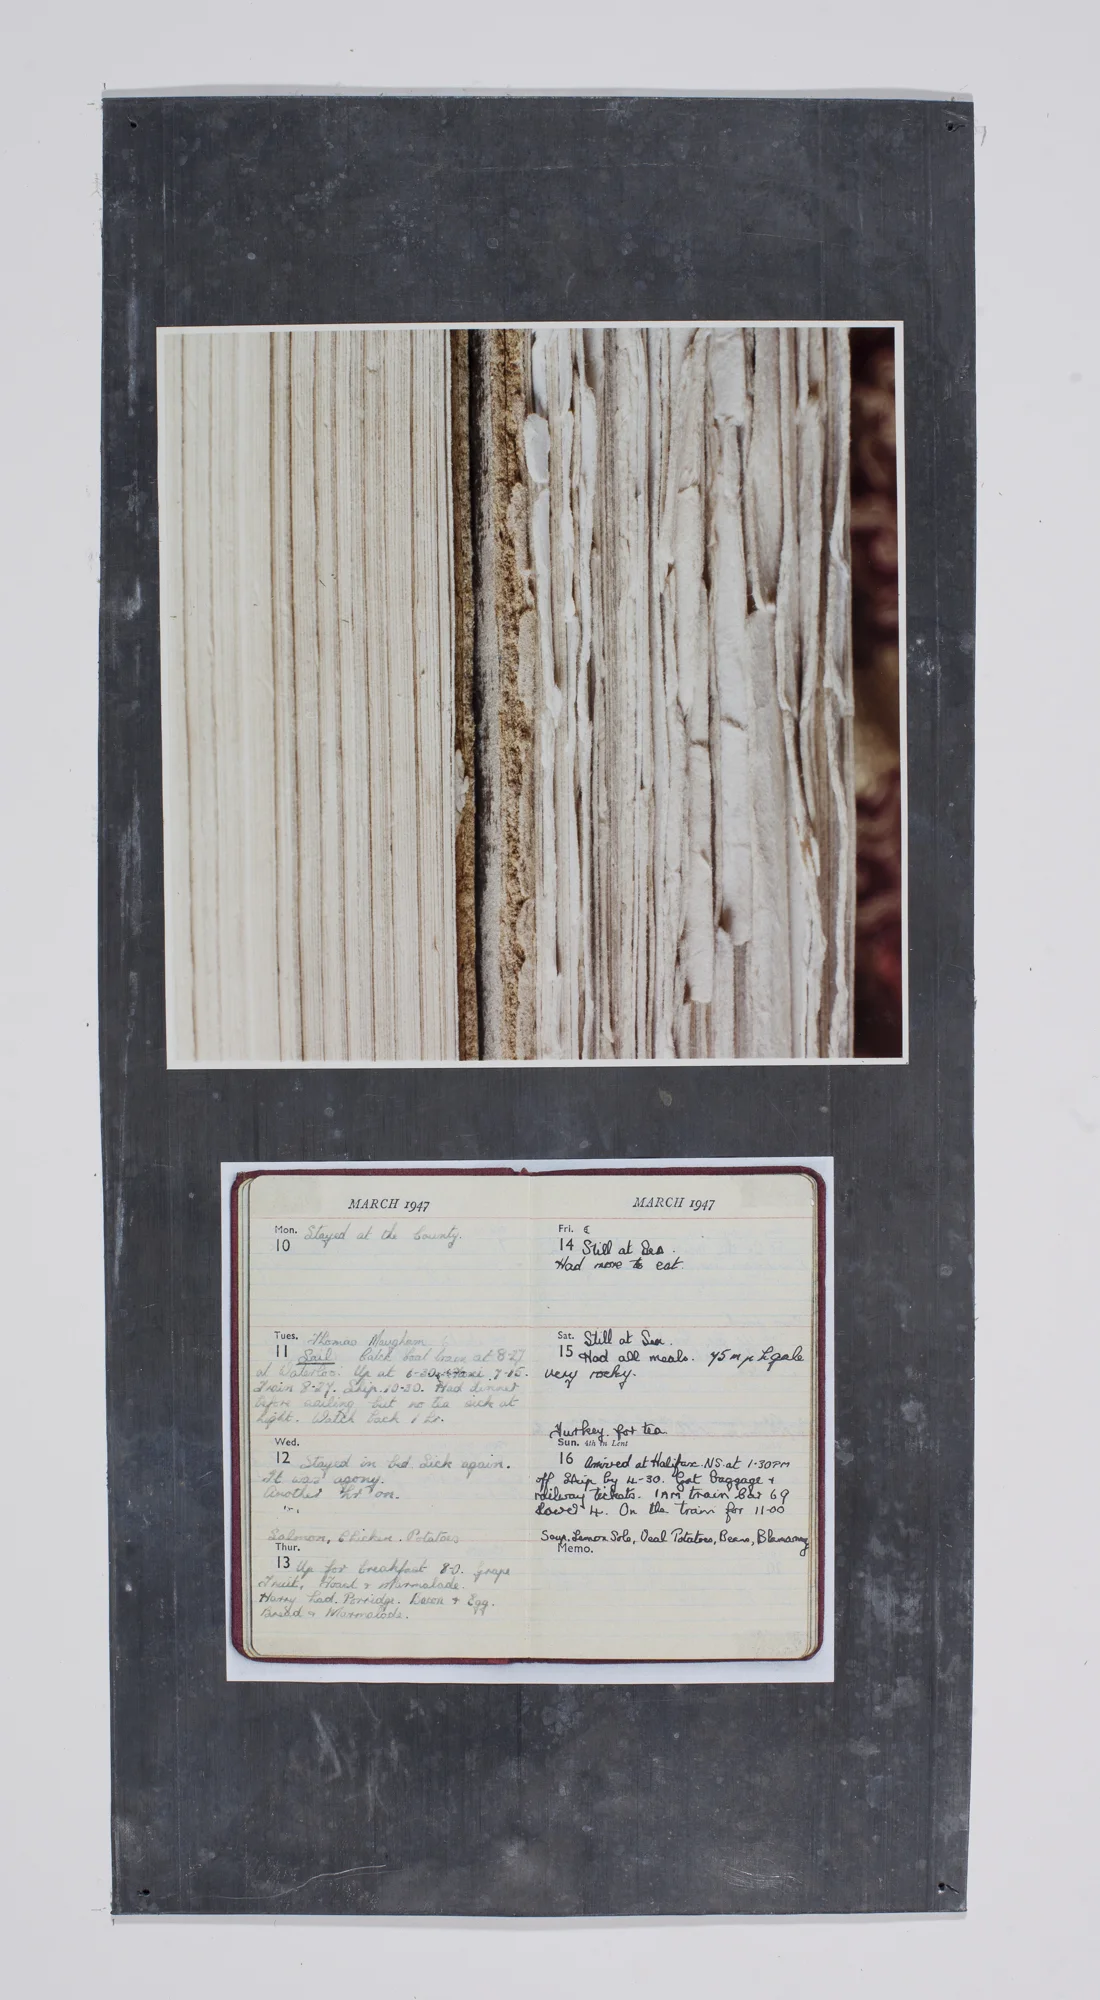 MARCH 1947
Mon.
10 Stayed at the County.
Tues. Thomas Maugham
11 Sail. Catch boat train at 8-27
at Waterloo. Up at 6-30, Taxi 7-15.
Train 8-27. Ship 10-30. Had dinner
before sailing but no tea sick at
night. Watch back 1 hr.
Wed.
12 Stayed in bed. Sick again.
It was agony.
Another hr on.
Salmon, Chicken. Potatoes
Thur.
13 Up for breakfast 8-0. Grape
Fruit, Toast & Marmalade.
Harry had Porridge. Bacon & Egg.
Bread & Marmalade.
MARCH 1947
Fri. ☾
14 Still at Sea.
Had more to eat.
Sat. Still at Sea.
15 Had all meals. 45 m p h gale
very rocky.
Turkey for tea
Sun. 4th in Lent
16 Arrived at Halifax NS. at 1-30PM
off Ship by 4-30. Got baggage +
railway tickets. 1AM train Car 69
Lower 4. On the train for 11-00
Soup, Lemon Sole, Veal Potatoes, Beans,
Memo.